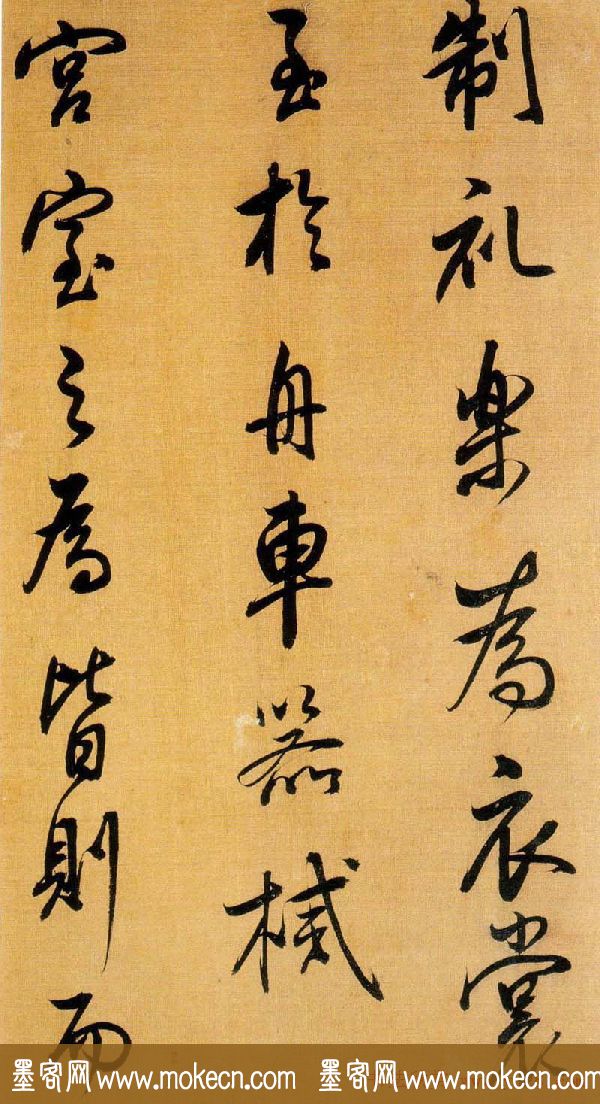 制礼楽為衣裳
至於舟車器械
宮室之為皆則而
墨客网 www.mokecn.com 墨客网 www.mokecn.com